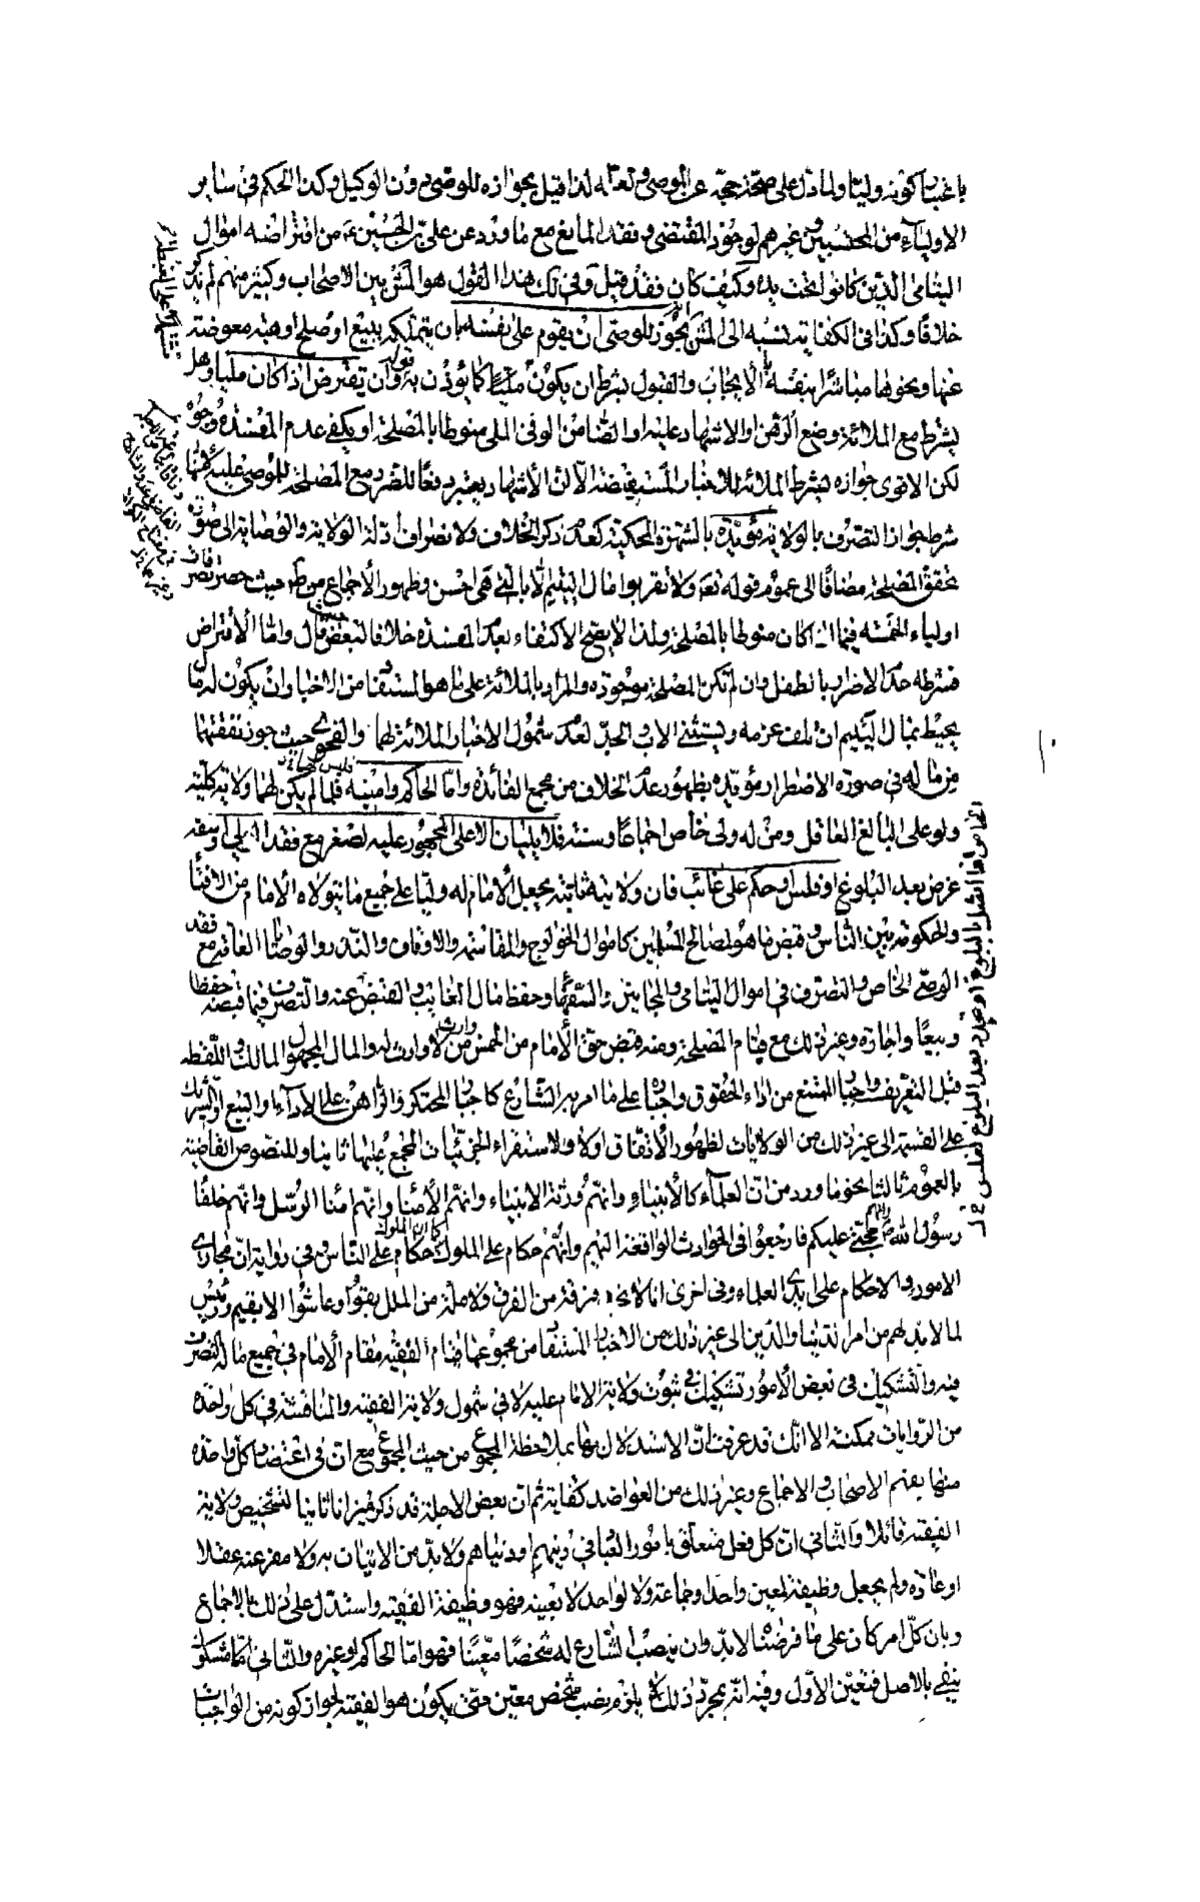 باعتبار كونه وليا ولما دل على صحة حجه عن الوصي ولعله لذا قيل بجوازه للوصي دون الوكيل وكذا الحكم في ساير
الاولياء من المحتسبين وغيرهم لوجود المقتضي وفقد المانع مع ما ورد عن علي بن الحسين ع من اقتراضه اموال
اليتامى الذين كانوا تحت يده وكيف كان فقد قيل وفي لك هذا القول هو المش بين الاصحاب وكثير منهم لم يذكر
خلافا وكذا في الكفاية نسبه الى المش يجوز للوصي ان يقوم على نفسه بان يتملكه ببيع او صلح او هبة معوضة
عنها ونحوها مباشرا بنفسه الايجاب والقبول بشرط ان يكون مليا كما يؤذن به قوله وان يقترض اذا كان مليا وهل
يشترط مع الملائة وضع الرهن والاشهاد عليه او الضامن الوفي الملي منوطا بالمصلحة او يكفي عدم المفسدة وجوه
لكن الاقوى جوازه بشرط الملائة للاخبار المستفيضة الا ان الاشهاد يعتبر دفعا للضرر مع المصلحة للموصى عليه لانها
شرط جواز التصرف بالولاية مؤيدة بالشهرة المحكية كعدم ذكر الخلاف ولانصراف ادلة الولاية والوصاية الى صورة
تحقق المصلحة مضافا الى عموم قوله تع ولا تقربوا مال اليتيم الا بالتي هي احسن وظهور الاجماع من حيث حصر تصرفات
اولياء الخمسة فيما اذا كان منوطا بالمصلحة ولذا لا يصح الاكتفاء بعدم المفسدة خلافا لبعض قال واما الاقتراض
فشرطه عدم الاضرار بالطفل وان لم تكن المصلحة موجودة والمراد بالملائة على ما هو المستفاد من الاخبار وان يكون له مال
يحيط بمال اليتيم ان تلف غرمه ويستثنى الاب والجد لعدم شمول الاخبار الملائة لهما والفحوى حيث جوز نفقتهما
من ماله في صورة الاضطرار مؤيدة بظهور عدم الخلاف من مجمع الفائدة واما الحاكم وامينه فلما لم يكن لهما ولاية كلية
ولو على البالغ العاقل ومن له ولي خاص اجماعا وسنة فلا يليان الا على المحجور عليه لصغر مع فقد الولي او سفه
عرض بعد البلوغ او فلس او حكم على غائب فان ولايته ثابتة بجعل الامام له وليا على جميع ما يتولاه الامام من الافتاء
والحكومة بين الناس وقبض ما هو لمصالح المسلمين كاموال الخراج والمقاسمة والاوقاف والنذر والوصايا العاقد مع فقد
الوصي الخاص والتصرف في اموال اليتامى والمجانين والسفهاء وحفظ مال الغائب والقبض عنه والتصرف فيما قبضه حفظا
وبيعا واجارة وغير ذلك مع قيام المصلحة ومنه قبض حق الامام من الخمس وارث من لا وارث له والمال المجهول المالك واللقطة
قبل التعريف واجبار الممتنع من اداء الحقوق واجباره على ما امر به الشارع كاجبار المحتكر والراهن على الاداء والبيع او الشريك
على القسمة الى غير ذلك من الولايات لظهور الاتفاق اولا والاستقراء الجزئيات المجمع عليها ثانيا وللنصوص القاضية
بالعموم ثالثا نحو ما ورد من ان العلماء كالانبياء وانهم ورثة الانبياء وانهم الامناء وانهم امناء الرسل وانهم خلفاء
رسول الله ص وانهم حجتي عليكم فارجعوا في الحوادث الواقعة اليهم وانهم حكام على الملوك كما ان الملوك حكام على الناس وفي رواية ان مجاري
الامور والاحكام على ايدي العلماء وفي اخرى انا لا نجد فرقة من الفرق ولا ملة من الملل بقوا وعاشوا الا بقيم ورئيس
لما لا بد لهم من امر الدنيا والدين الى غير ذلك من الاخبار المستفاد من مجموعها قيام الفقيه مقام الامام في جميع ما له التصرف
فيه والتشكيك في بعض الامور تشكيك في ثبوت ولاية الامام عليه لا في شمول ولاية الفقيه والمناقشة في كل واحدة
من الروايات ممكنة الا انك قد عرفت ان الاستدلال بها بملاحظة المجموع من حيث المجموع مع ان في اعتضاد كل واحدة
منها بفهم الاصحاب والاجماع وغير ذلك من العواضد كفاية ثم ان بعض الاجلة قد ذكر ميزانا ثانيا لتشخيص ولاية
الفقيه قائلا والثاني ان كل فعل متعلق بامور العباد في دينهم او دنياهم ولا بد من الاتيان به ولا مفر عنه عقلا
او عادة ولم يجعل وظيفة لمعين واحد او جماعة ولا لواحد لا بعينه فهو وظيفة الفقيه واستدل على ذلك بالاجماع
وبان كل امر كان على ما فرضنا لا بد وان ينصب الشارع له شخصا معينا فهو اما الحاكم او غيره والثاني مشكوك
ينفى بالاصل فتعين الاول وفيه انه بمجرد ذلك لا يلزم نصب شخص معين حتى يكون هو الفقيه لجواز كونه من الواجبات
الخاص اما السفيه بالبلوغ او تجدد بعد البلوغ الفلس
١٠